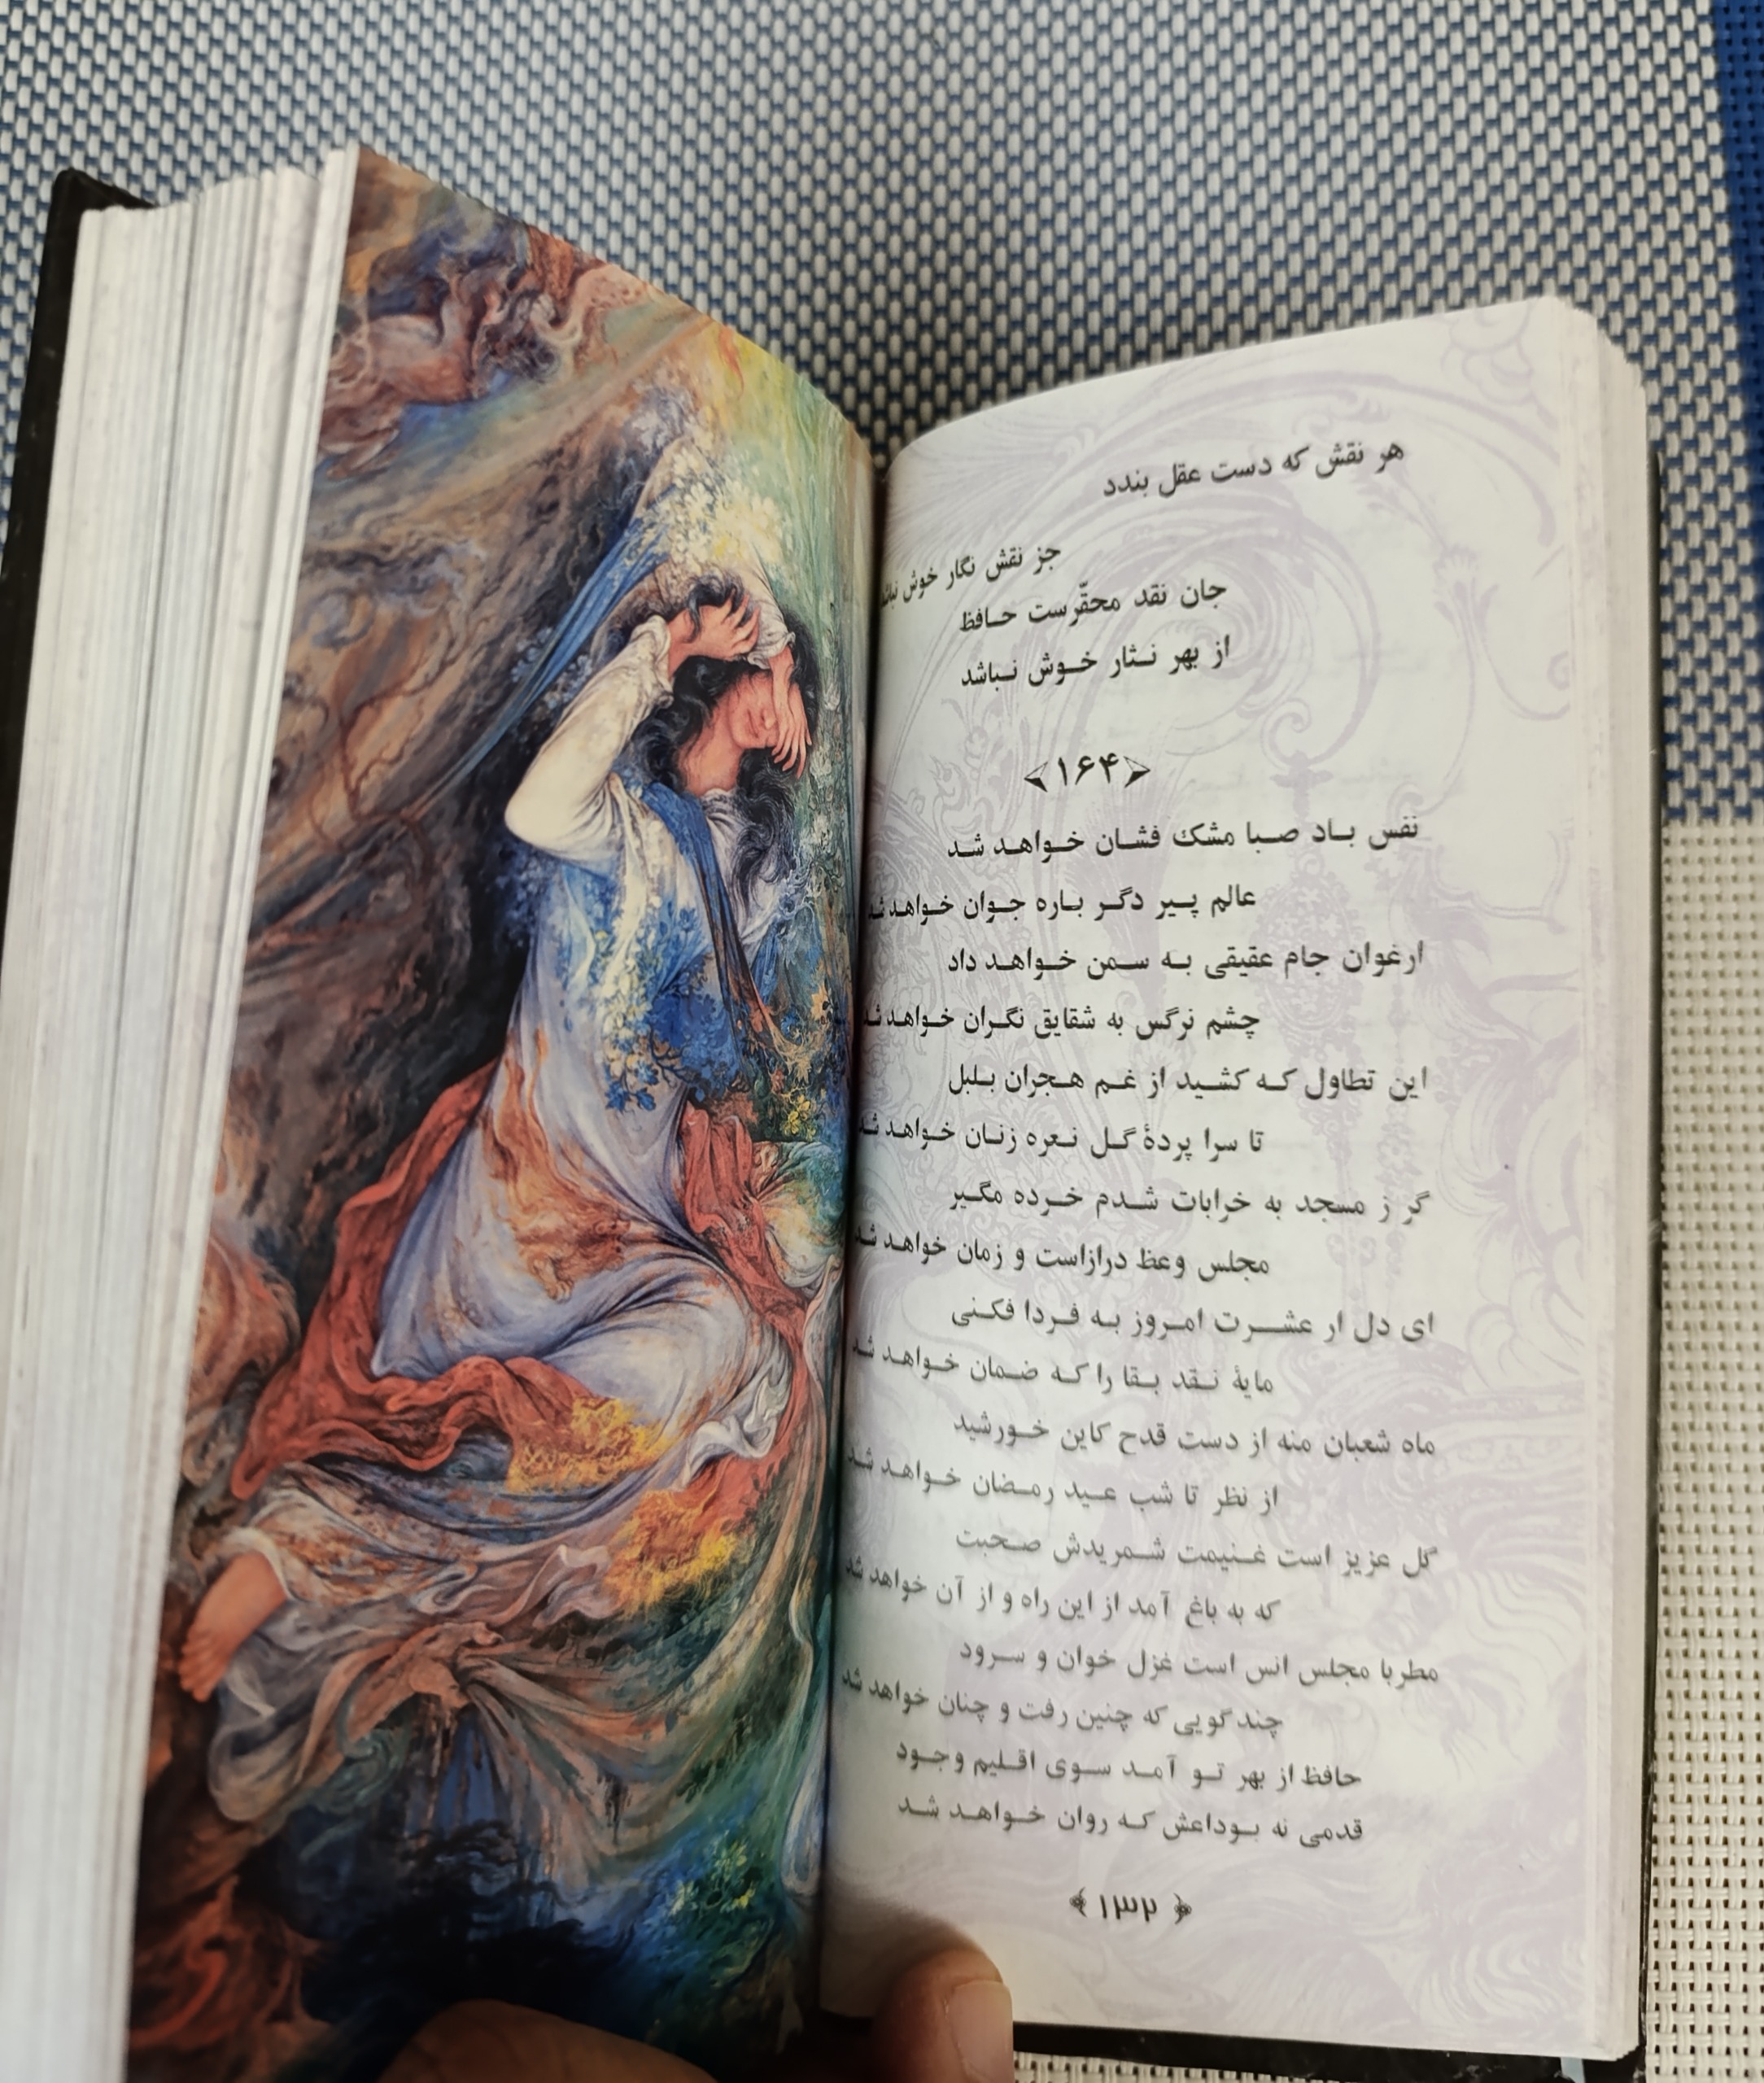 هر نقش که دست عقل بندد
جز نقش نگار خوش نباشد
جان نقد محقّرست حافظ
از بهر نثار خوش نباشد
۱۶۴
نفس باد صبا مشک فشان خواهد شد
عالم پیر دگر باره جوان خواهد شد
ارغوان جام عقیقی به سمن خواهد داد
چشم نرگس به شقایق نگران خواهد شد
این تطاول که کشید از غم هجران بلبل
تا سرا پردهٔ گل نعره زنان خواهد شد
گر ز مسجد به خرابات شدم خرده مگیر
مجلس وعظ درازاست و زمان خواهد شد
ای دل ار عشرت امروز به فردا فکنی
مایهٔ نقد بقا را که ضمان خواهد شد
ماه شعبان منه از دست قدح کاین خورشید
از نظر تا شب عید رمضان خواهد شد
گل عزیز است غنیمت شمریدش صحبت
که به باغ آمد از این راه و از آن خواهد شد
مطربا مجلس انس است غزل خوان و سرود
چند گویی که چنین رفت و چنان خواهد شد
حافظ از بهر تو آمد سوی اقلیم وجود
قدمی نه بوداعش که روان خواهد شد
۱۳۲